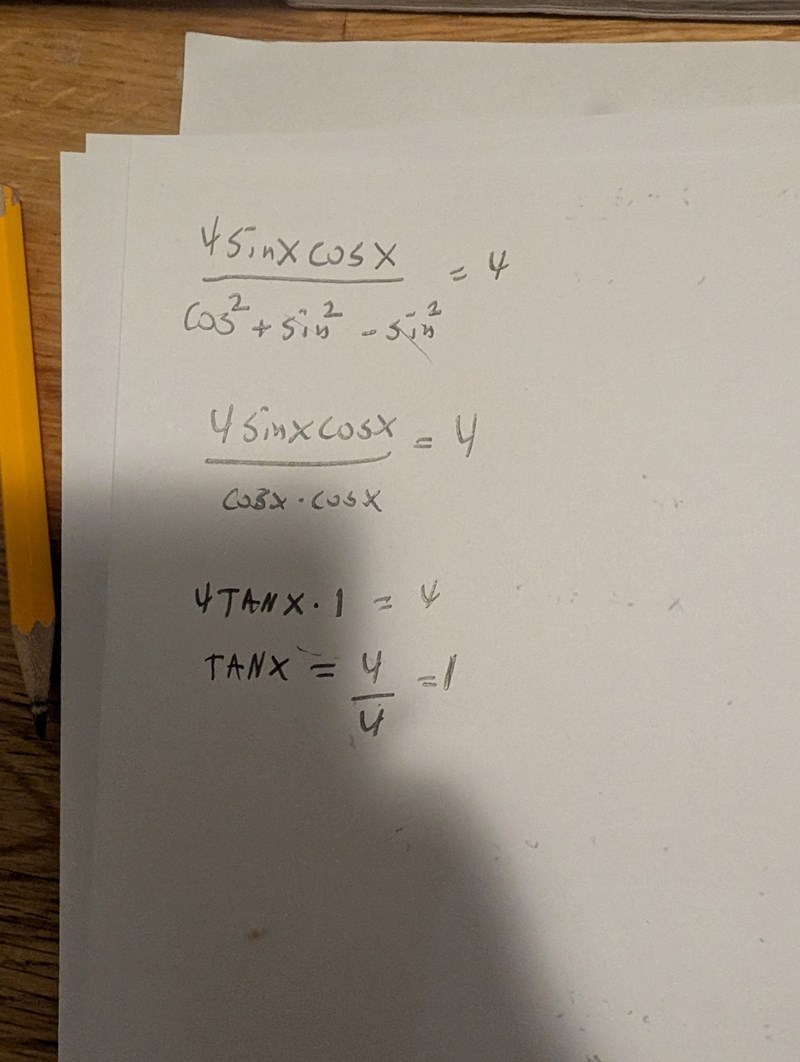 4 sinx cosx / cos² + sin² - sin² = 4
4 sinx cosx / cosx · cosx = 4
4 TANX · 1 = 4
TANX = 4/4 = 1